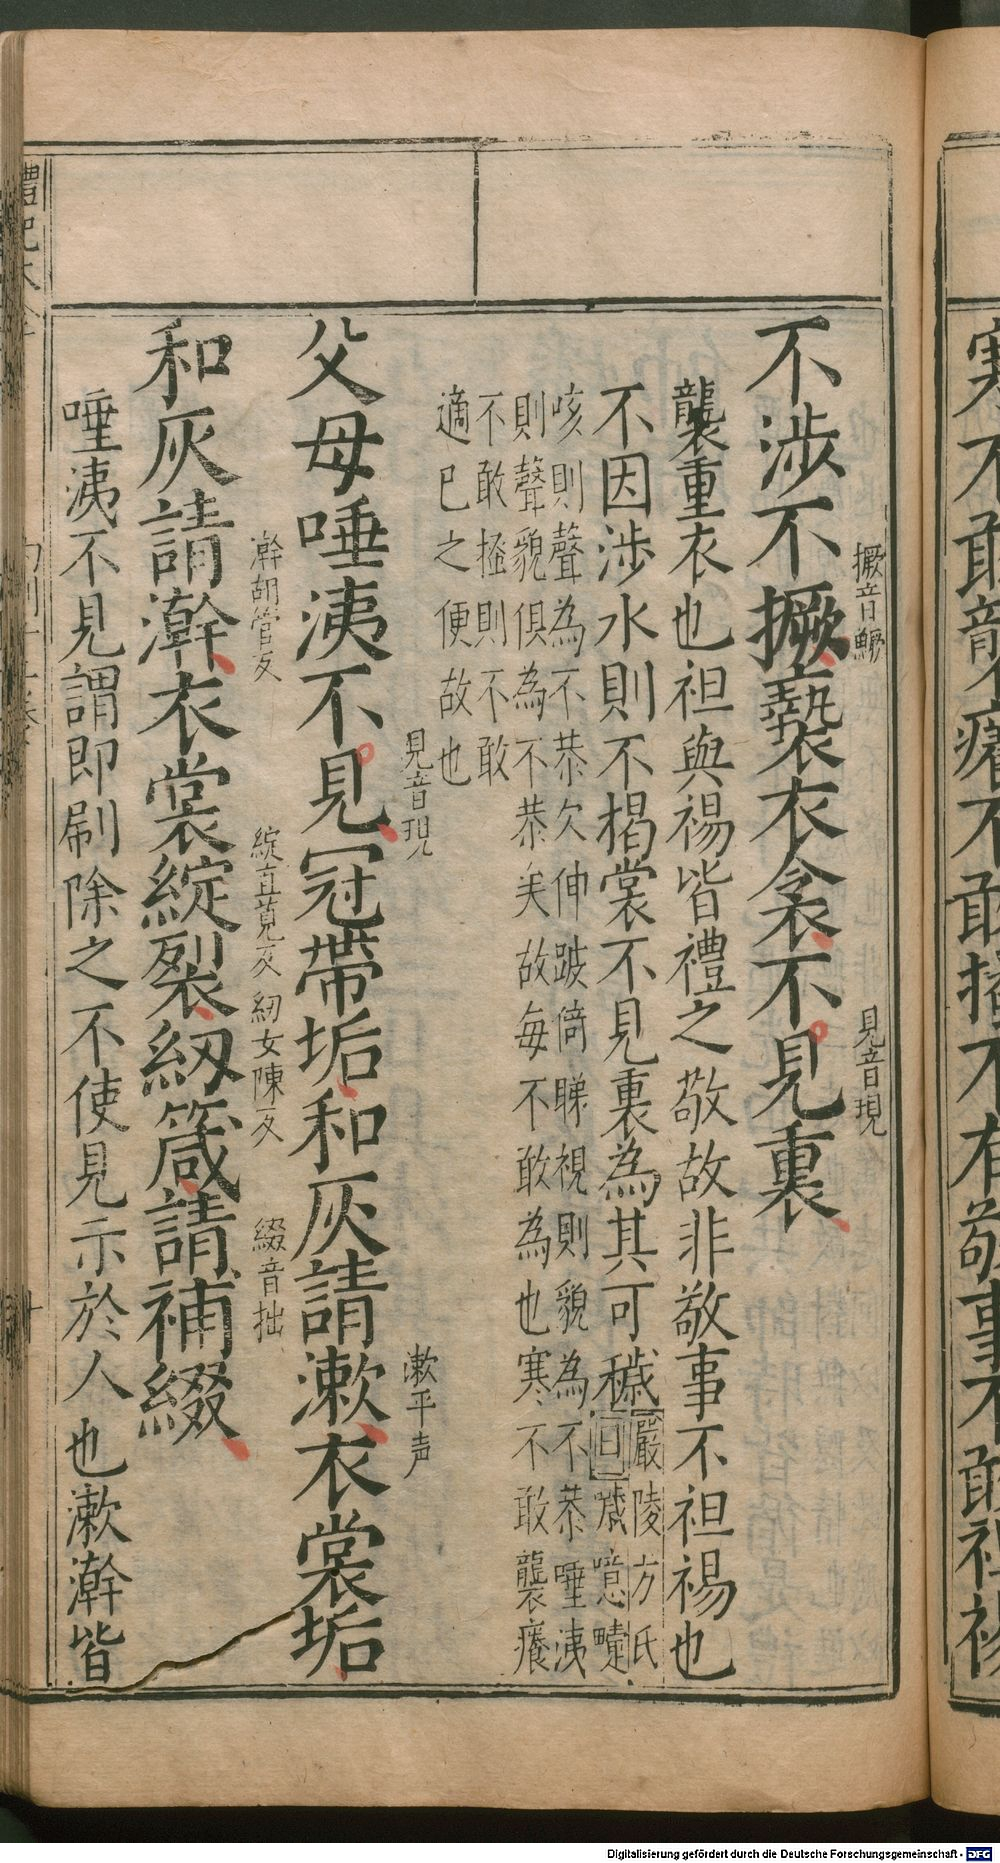 不涉不撅褻衣衾不見裏
撅音鱖
見音現
襲重衣也袒與裼皆禮之敬故非敬事不袒裼也
不因涉水則不揭裳不見裏為其可穢
嚴陵方氏
曰噦噫嚏
咳則聲為不恭欠伸跛倚睇視則貌為不恭唾洟
則聲貌俱為不恭矣故每不敢為也寒不敢襲癢
不敢搔則不敢
適己之便故也
父母唾洟不見冠帶垢和灰請漱衣裳垢
見音現
漱平声
和灰請澣衣裳綻裂紉箴請補綴
澣胡管反
綻直莧反
紉女陳反
綴音拙
唾洟不見謂即刷除之不使見示於人也漱澣皆
Digitalisierung gefördert durch die Deutsche Forschungsgemeinschaft - DFG